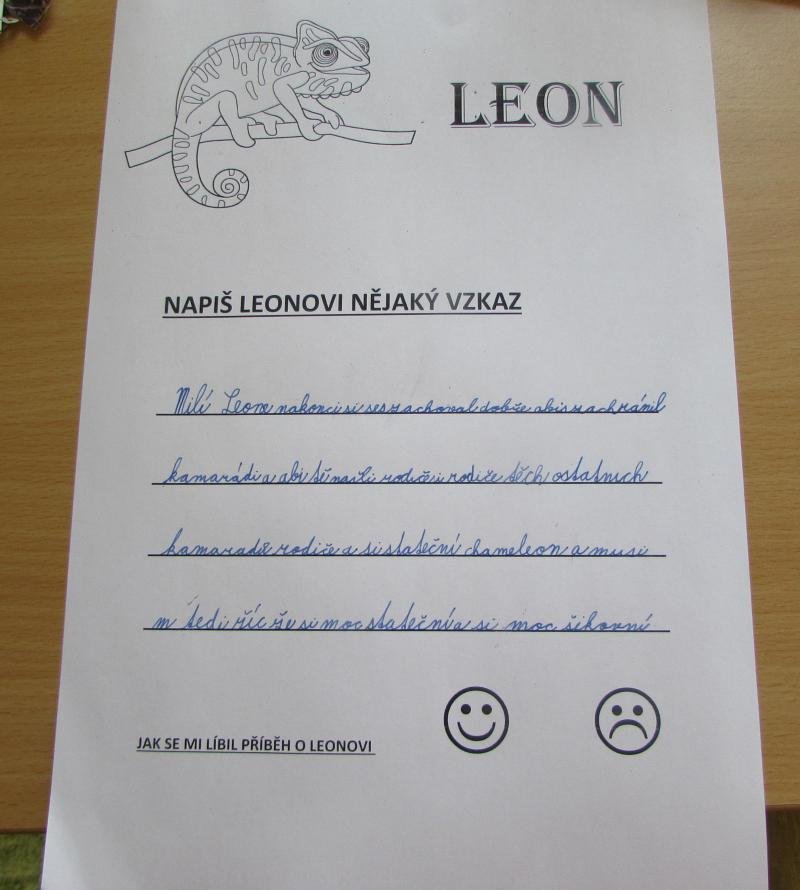 LEON
NAPIŠ LEONOVI NĚJAKÝ VZKAZ
Milí Leone nakonci si ses zachoval dobře abis zachránil
kamarádi a abi tě našli rodiče i rodiče těch ostatních
kamaradů rodiče a si stateční chameleon a musi
m tedi říc že si moc stateční a si moc šikovní
JAK SE MI LÍBIL PŘÍBĚH O LEONOVI